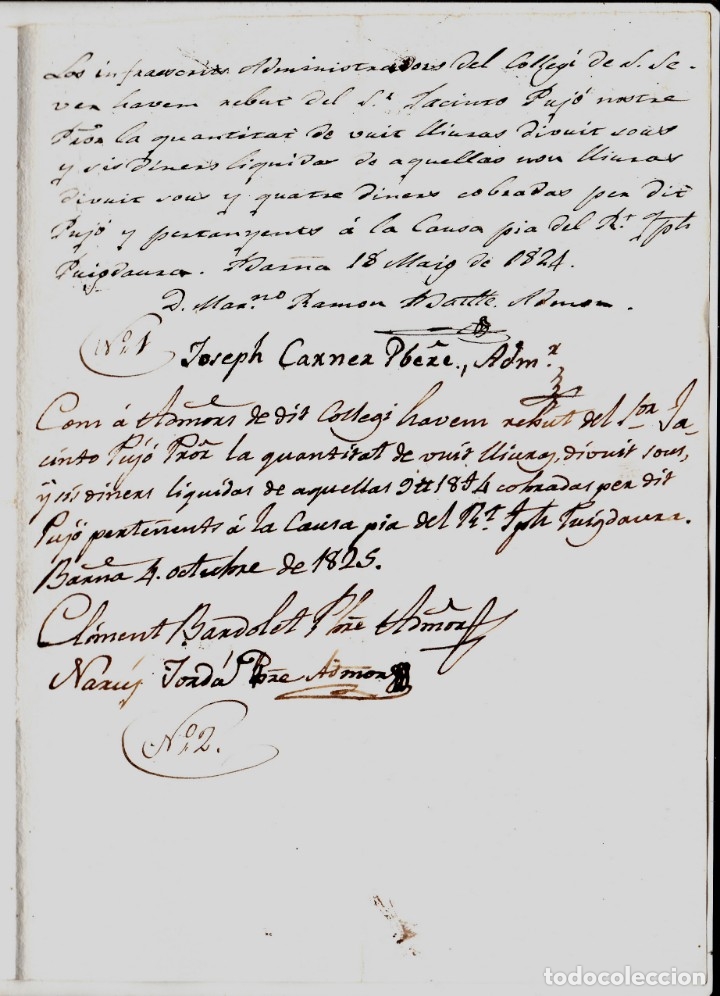 Los infraescrits Administradors del Collegi de S. Se-
ver havem rebut del S.r Jacinto Pujó nostre
Pror̃ la quantitat de vuit lliuras divuit sous
y sis diners liquidas de aquellas nou lliuras
divuit sous y quatre diners cobradas per dit
Pujó y pertanyents á la Causa pia del R.t Jph
Puigdaura. Barña 18 Maig de 1824.
D. Mar.no Ramon Batlle. Admor.
N.o 1
Joseph Carner Pbere., Adm.r
Com á Admors de dit Collegi havem rebut del S.or Ja-
cinto Pujó Pror̃ la quantitat de vuit lliuras, divuit sous,
y sis diners liquidas de aquellas 9 tt 18 s 4 cobradas per dit
Pujó perteñents á la Causa pia del R.t Jph Puigdaura.
Barña 4. octubre de 1825.
Clément Bardolet Pbre Admor
Narcís Jordá Pbre Admor
N.o 2.
todocoleccion